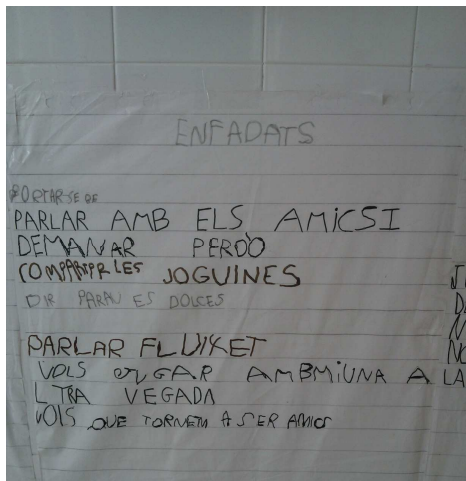 ENFADATS
PORTAR-SE BE
PARLAR AMB ELS AMICSI
DEMANAR PERDÒ
COMPARTIR LES JOGUINES
DIR PARAU ES DOLCES
PARLAR FLUIXET
VOLS JUGAR AMBMIUNA A LA
LTRA VEGADA
VOLS QUE TORNEM A SER AMICS